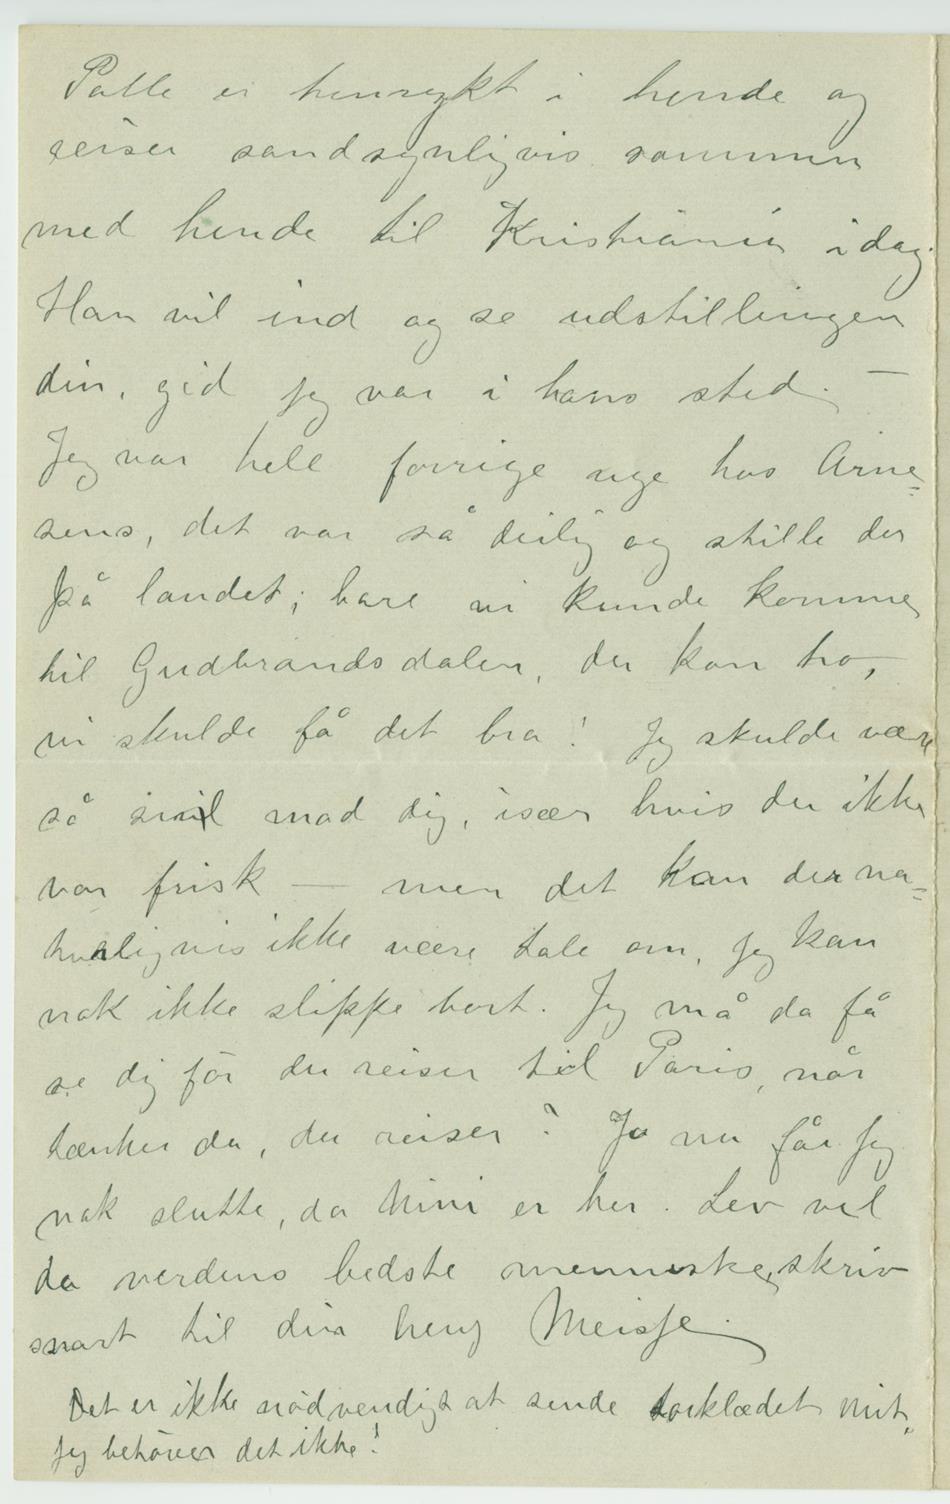 Palle er henrykt i hende og
reiser sandsynligvis sammen
med hende til Kristiania idag.
Han vil ind og se udstillingen
din, gid jeg var i hans sted. —
Jeg var hele forrige uge hos Arne=
sens, det var så deilig og stille der
på landet; bare vi kunde komme
til Gudbrandsdalen, du kan tro,
vi skulde få det bra! Jeg skulde være
så snil mod dig, især hvis du ikke
var frisk — men det kan der na=
turligvis ikke være tale om, jeg kan
nok ikke slippe bort. Jeg må da få
se dig før du reiser til Paris, når
tænker du, du reiser? Ja nu får jeg
nok slutte, da Mini er her. Lev vel
da verdens bedste menneske, skriv
snart til din heng Meisse.
Det er ikke nødvendigt at sende torklædet mit,
jeg behøver det ikke!